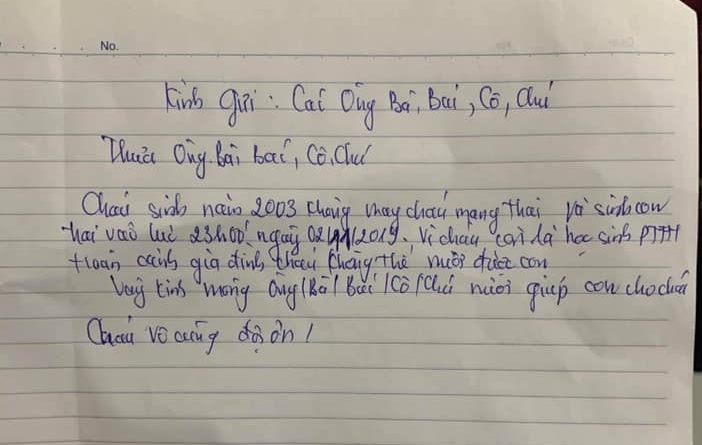 No.
Kính gửi: Các Ông Bà, Bác, Cô, Chú
Thưa Ông Bà Bác, Cô, Chú
Cháu sinh năm 2003 không may cháu mang thai và sinh con
trai vào lúc 23h00' ngày 02/11/2019. Vì cháu còn là học sinh PTTH
hoàn cảnh gia đình cháu không thể nuôi được con
Vậy kính mong Ông/Bà/Bác/Cô/Chú nuôi giúp con cho cháu
Cháu vô cùng đội ơn!